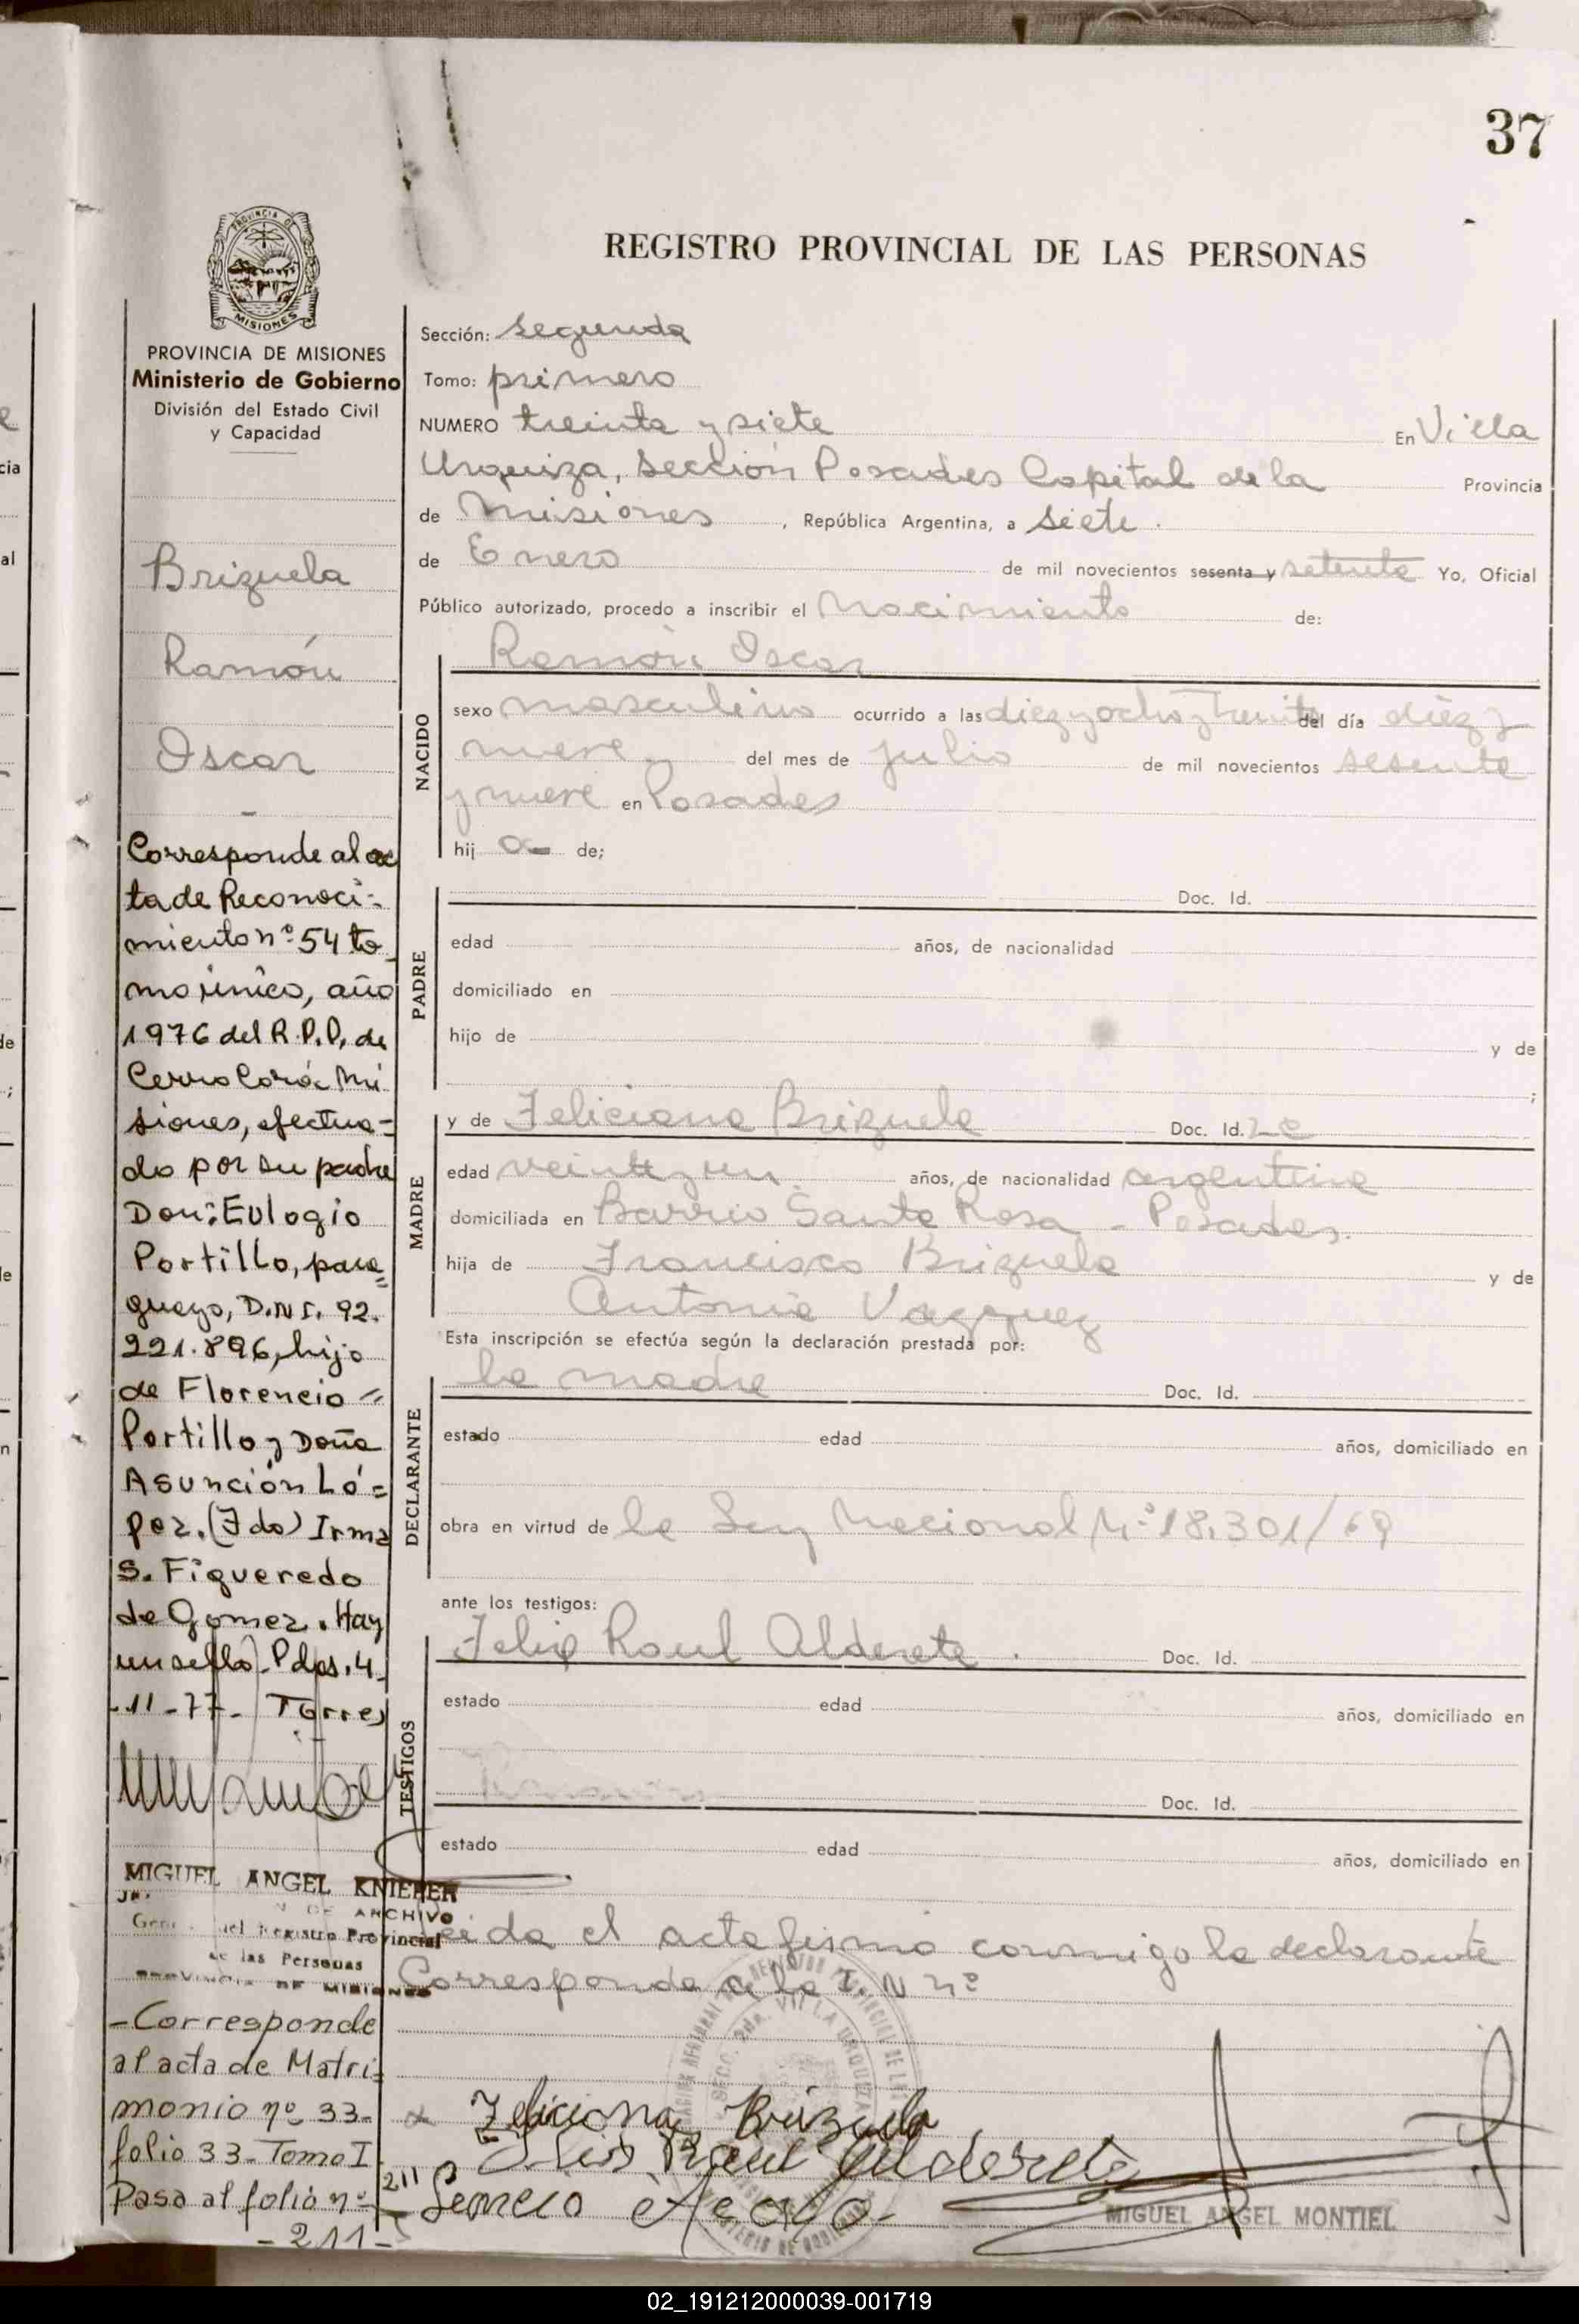 37
REGISTRO PROVINCIAL DE LAS PERSONAS
PROVINCIA DE MISIONES
Ministerio de Gobierno
División del Estado Civil
y Capacidad
Brizuela
Ramón
Oscar
Corresponde al ac
ta de Reconoci-
miento nº 54 to
mo único, año
1976 del R.P.P. de
Cerro Corá Mi
siones, efectua-
do por su padre
Don: Eulogio
Portillo, para=
guayo, D.N.I. 92.
221.896, hijo
de Florencio =
Portillo y Doña
Asunción Ló=
pez. (Fdo) Irma
S. Figueredo
de Gomez. Hay
un sello). Pdas. 4
-11-77- Torres
MIGUEL ANGEL KNIEPER
DE ARCHIVO
del Registro Provincial
de las Personas
PROVINCIA DE MISIONES
-Corresponde
al acta de Matri=
monio nº 33-
folio 33- Tomo I
Pasa al folio nº
-211-
Sección: segunda
Tomo: primero
NUMERO treinta y siete En Villa
Urquiza, Sección Posadas Capital de la Provincia
de Misiones, República Argentina, a siete.
de Enero de mil novecientos sesenta y setenta Yo, Oficial
Público autorizado, procedo a inscribir el Nacimiento de:
NACIDO
Ramón Oscar
sexo masculino ocurrido a las diez y ocho y treinta del día diez y
nueve del mes de julio de mil novecientos sesenta
y nueve en Posadas
hij o de;
PADRE
Doc. Id.
edad años, de nacionalidad
domiciliado en
hijo de y de
;
MADRE
y de Feliciana Brizuela Doc. Id.
edad veinte y un años, de nacionalidad argentina
domiciliada en Barrio Santa Rosa - Posadas.
hija de Francisco Brizuela y de
Antonia Vazquez
Esta inscripción se efectúa según la declaración prestada por:
DECLARANTE
la madre Doc. Id.
estado edad años, domiciliado en
obra en virtud de la Ley Nacional Nº 18.301/69
ante los testigos:
TESTIGOS
Felix Raul Alderete. Doc. Id.
estado edad años, domiciliado en
Doc. Id.
estado edad años, domiciliado en
Leida el acta firma conmigo la declarante
Corresponde a la I. N nº
Feliciana Brizuela
Raul Alderete
211
MIGUEL ANGEL MONTIEL
02_191212000039-001719